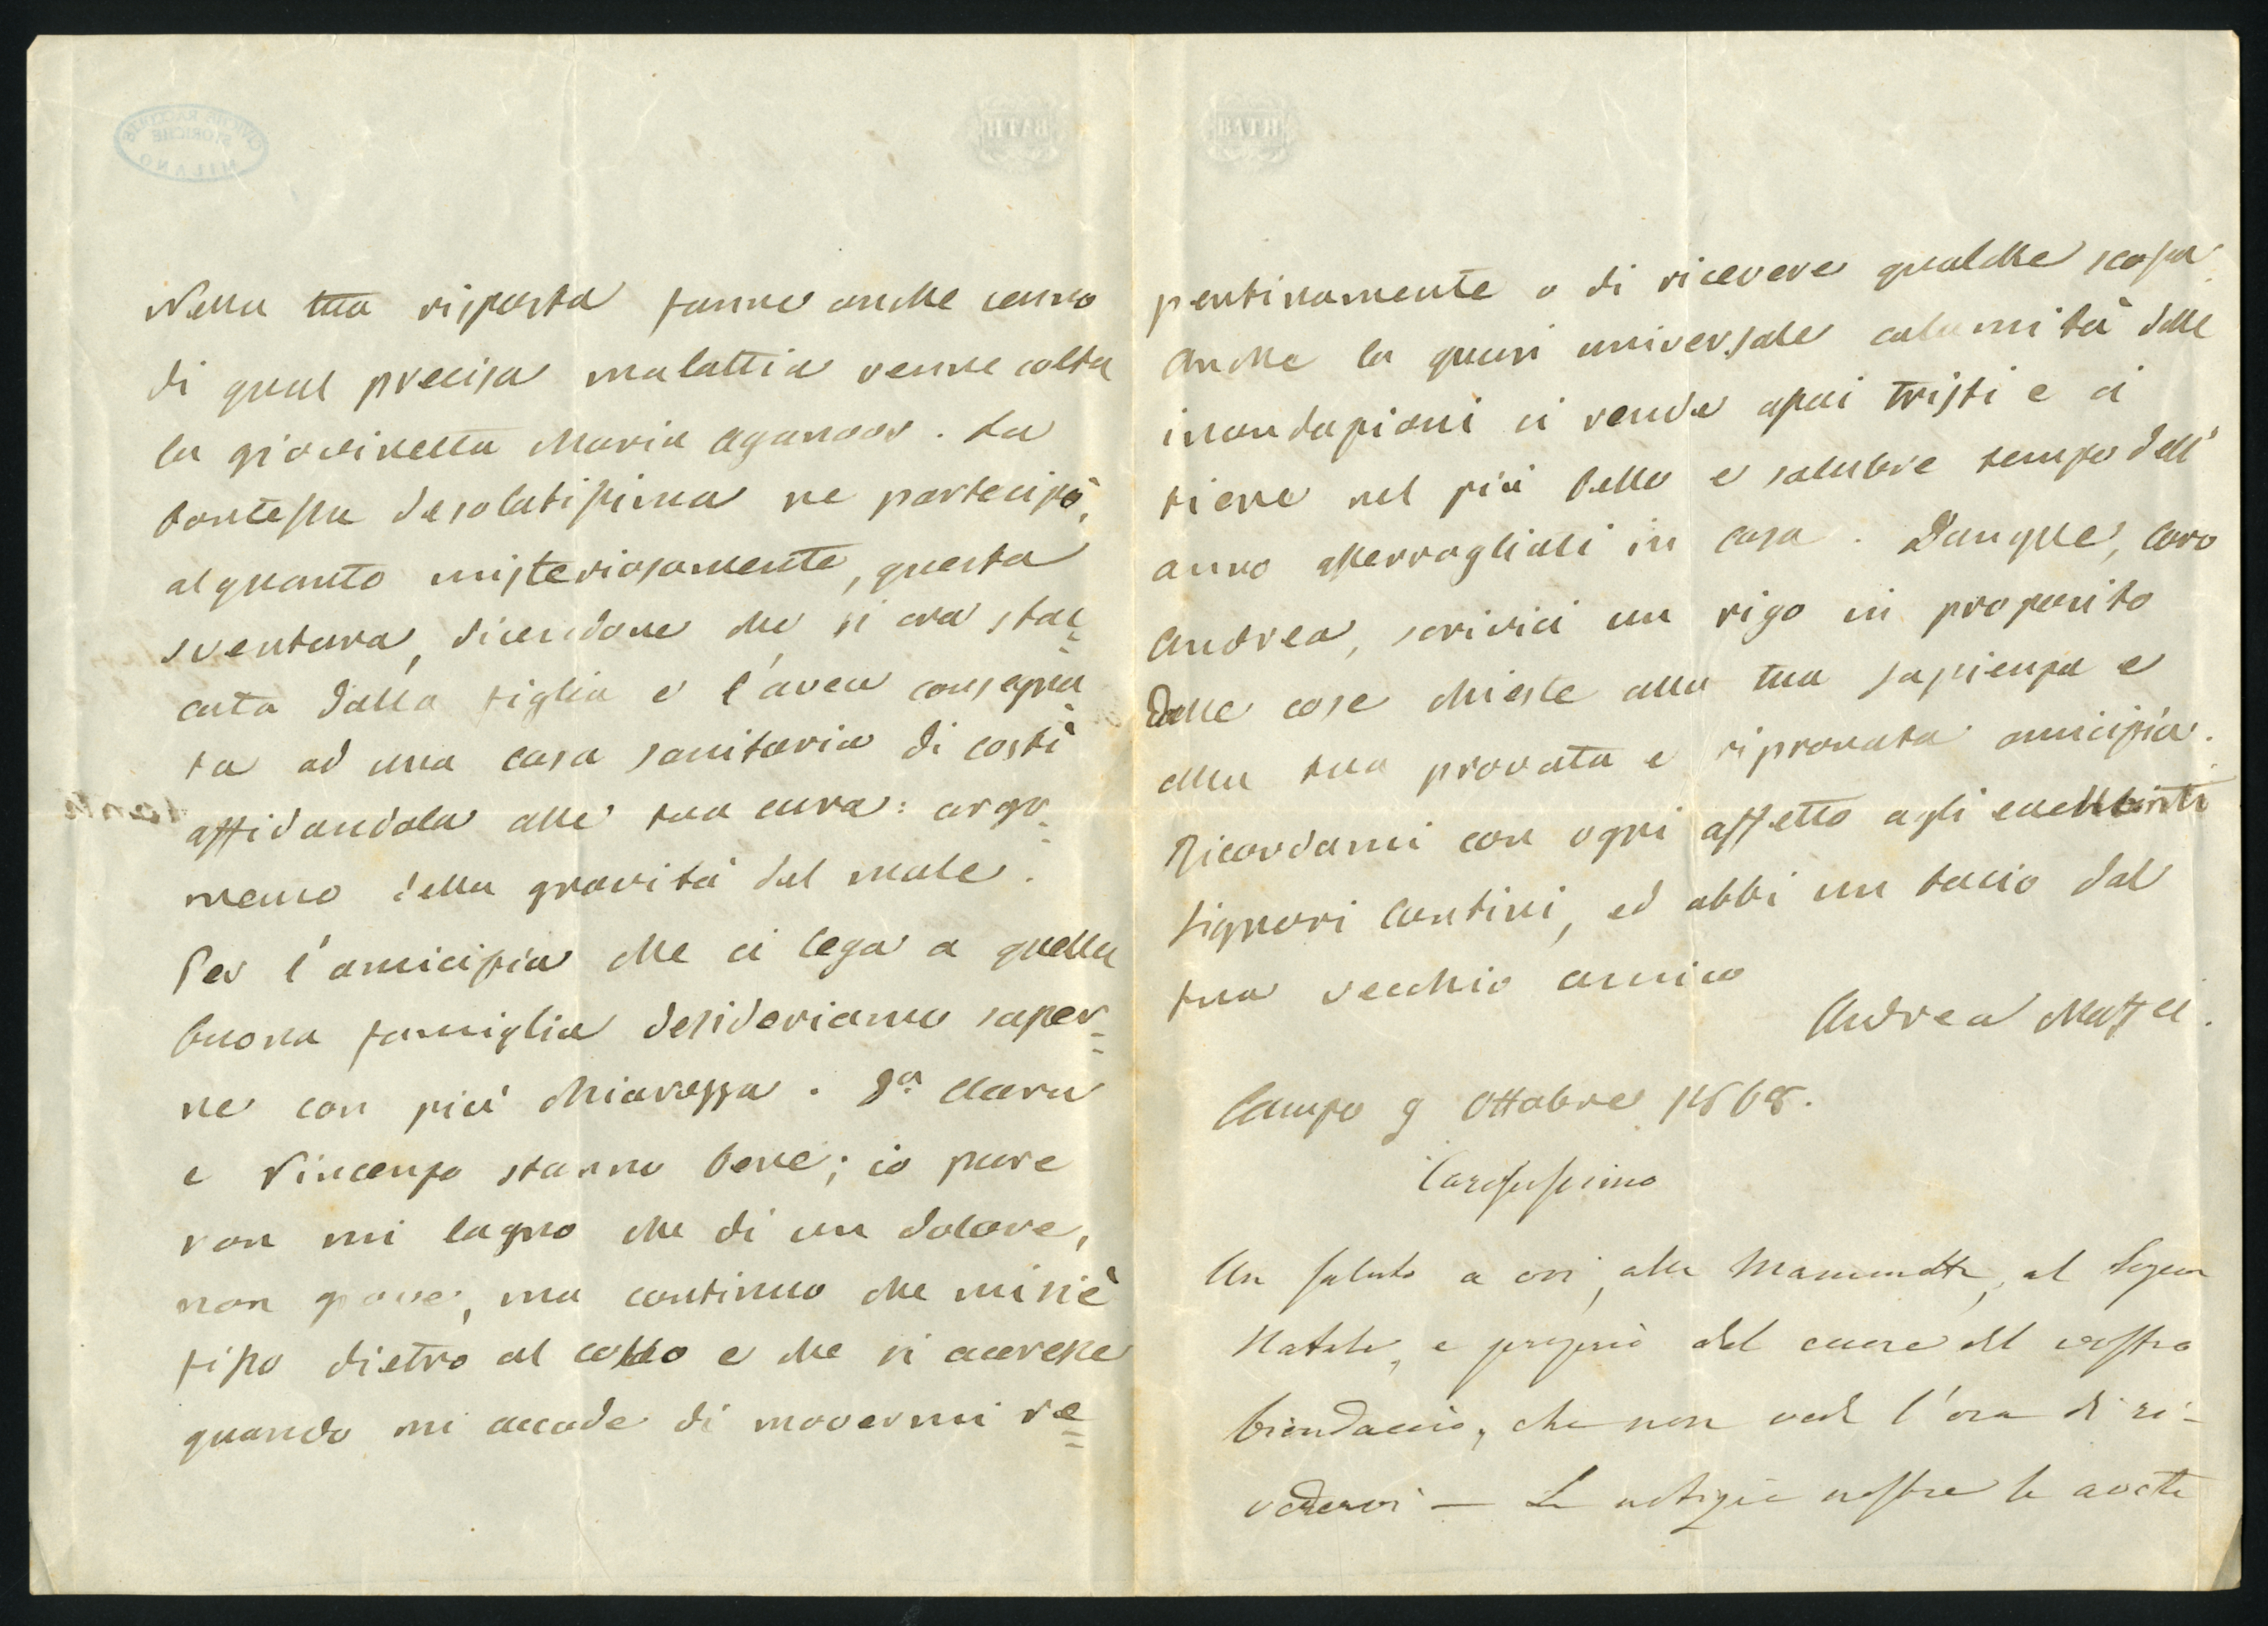 Nella tua risposta fanne anche cenno
di qual precisa malattia venne colta
la giovinetta Maria Aganoor. La
Contessa desolatissima ne partecipò,
alquanto misteriosamente, questa
sventura, dicendone che si era stac=
cata dalla figlia e l'avea consegna
ta ad una casa sanitaria di costì
affidandola alle tua cura: argo=
mento della gravità del male.
Per l'amicizia che ci lega a quella
buona famiglia desideriamo saper=
ne con più chiarezza. Da Clara
e Vincenzo stanno bene; io pure
non mi lagno che di un dolore,
non grave, ma continuo che mi s'è
fisso dietro al collo e che si accresce
quando mi accade di movermi re=
pentinamente o di ricevere qualche scossa.
Anche la quasi universale calamità delle
inondazioni ci rende assai tristi e ci
tiene nel più bello e salubre tempo dell'
anno asserragliati in casa. Dunque, caro
Andrea, scrivici un rigo in proposito
delle cose chieste alla tua sapienza e
alla tua provata e riprovata amicizia.
Ricordami con ogni affetto agli eccellenti
Signori Contini, ed abbi un bacio dal
tuo vecchio amico
Andrea Maffei.
Campo 9 Ottobre 1868.
Carissimo
Un saluto a voi, alla Mammetta, al Signor
Natale, e proprio dal cuore del vostro
biondaccio, che non vede l'ora di ri-
vedervi — Le notizie nostre le avete
BATH
MILANO